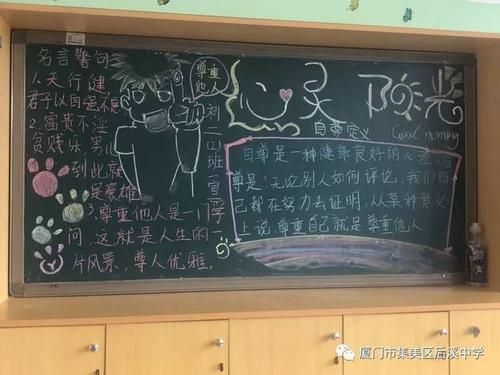 名言警句
1.天行健
君子以自强不息
2.富贵不淫
贫贱乐,男儿
到此就
是豪雄
3.尊重他人是一门学
问,这就是人生的一
片风景,尊人优雅。
尊重
他人
初二(2)班宣
心灵阳光
自尊定义
Good morning
自尊是一种健康良好的心态,自
尊是:无论别人如何评论,我们自
己都在努力去证明,从某种意义
上说,尊重自己就是尊重他人
厦门市集美区后溪中学